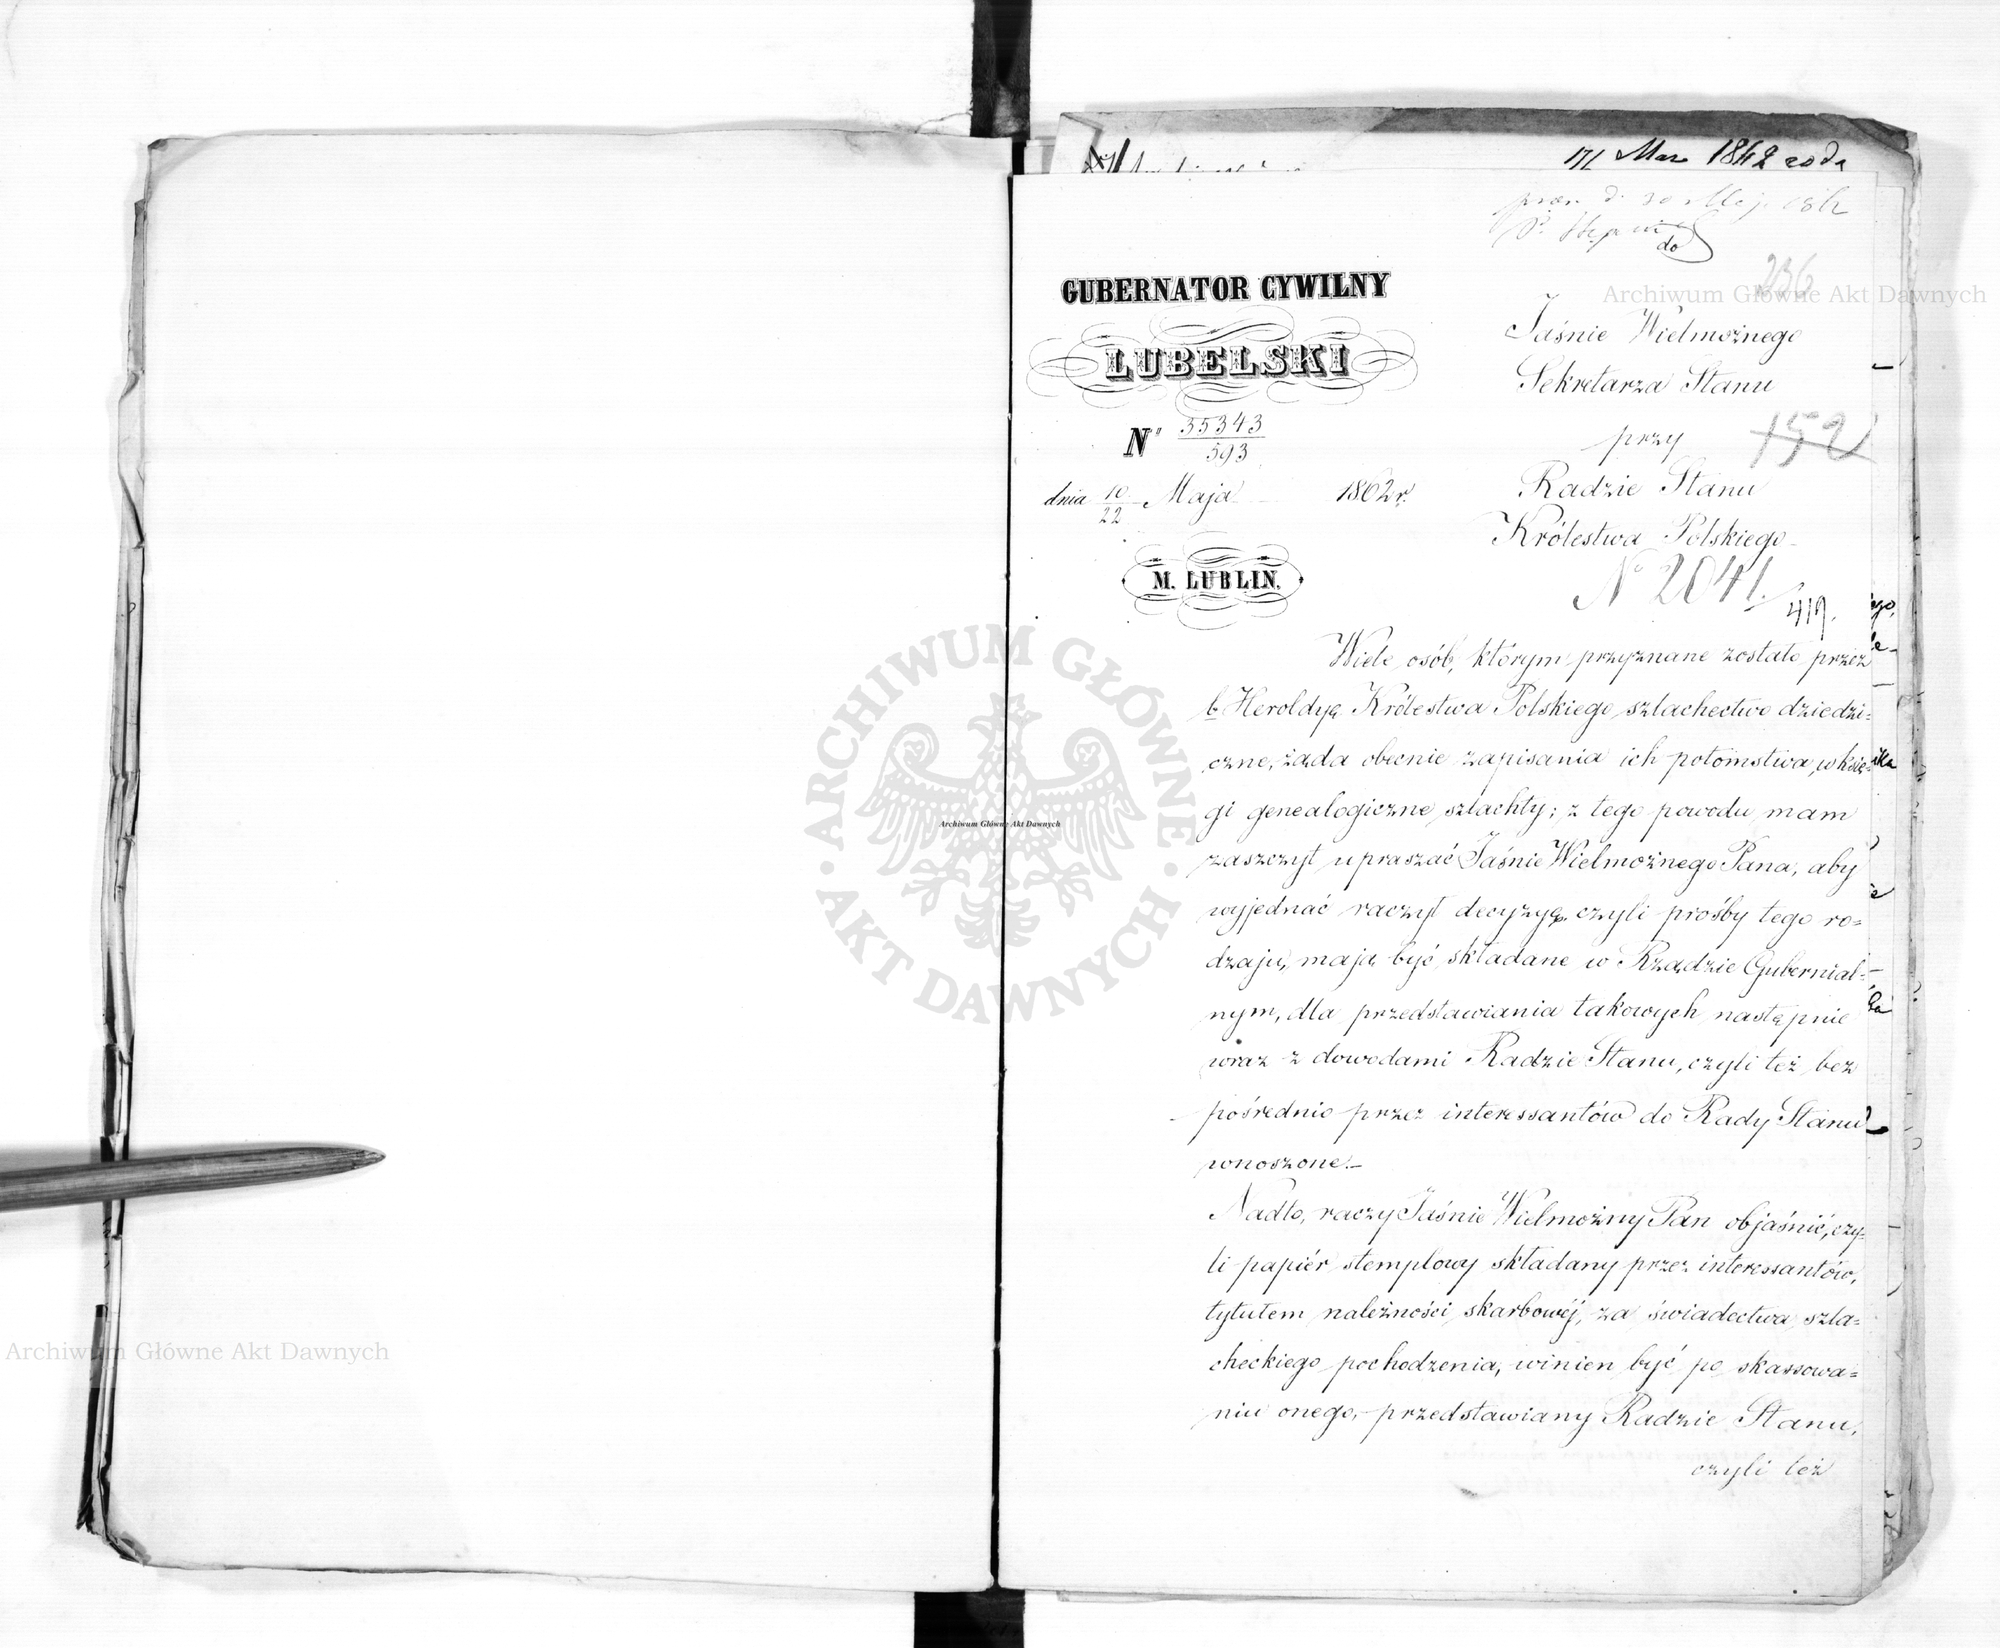 17/ Мая 1862 года
236
GUBERNATOR CYWILNY
LUBELSKI
Nº 35343/593
dnia 10/22 Maja 1862 r.
M. LUBLIN.
do
Jaśnie Wielmożnego
Sekretarza Stanu
przy
152
Radzie Stanu
Królestwa Polskiego
Nº 2041.
419.
Wiele osób, którym przyznane zostało przez
b Heroldyę Królestwa Polskiego szlachectwo dziedzi=
czne, żąda obecnie zapisania ich potomstwa w księ=
gi genealogiczne szlachty; z tego powodu mam
zaszczyt upraszać Jaśnie Wielmożnego Pana, aby
wyjednać raczył decyzyę, czyli prośby tego ro=
dzaju, mają być składane w Rządzie Gubernial=
nym, dla przedstawiania takowych następnie
wraz z dowodami Radzie Stanu, czyli też bez
pośrednio przez interessantów do Rady Stanu
wnoszone.—
Nadto, raczy Jaśnie Wielmożny Pan objaśnić, czy=
li papiér stemplowy składany przez interessantów,
tytułem należności skarbowéj, za świadectwa szla=
checkiego pochodzenia, winien być po skassowa=
niu onego, przedstawiany Radzie Stanu,
czyli też
Archiwum Główne Akt Dawnych
ARCHIWUM GŁÓWNE
AKT DAWNYCH
Archiwum Główne Akt Dawnych
Archiwum Główne Akt Dawnych